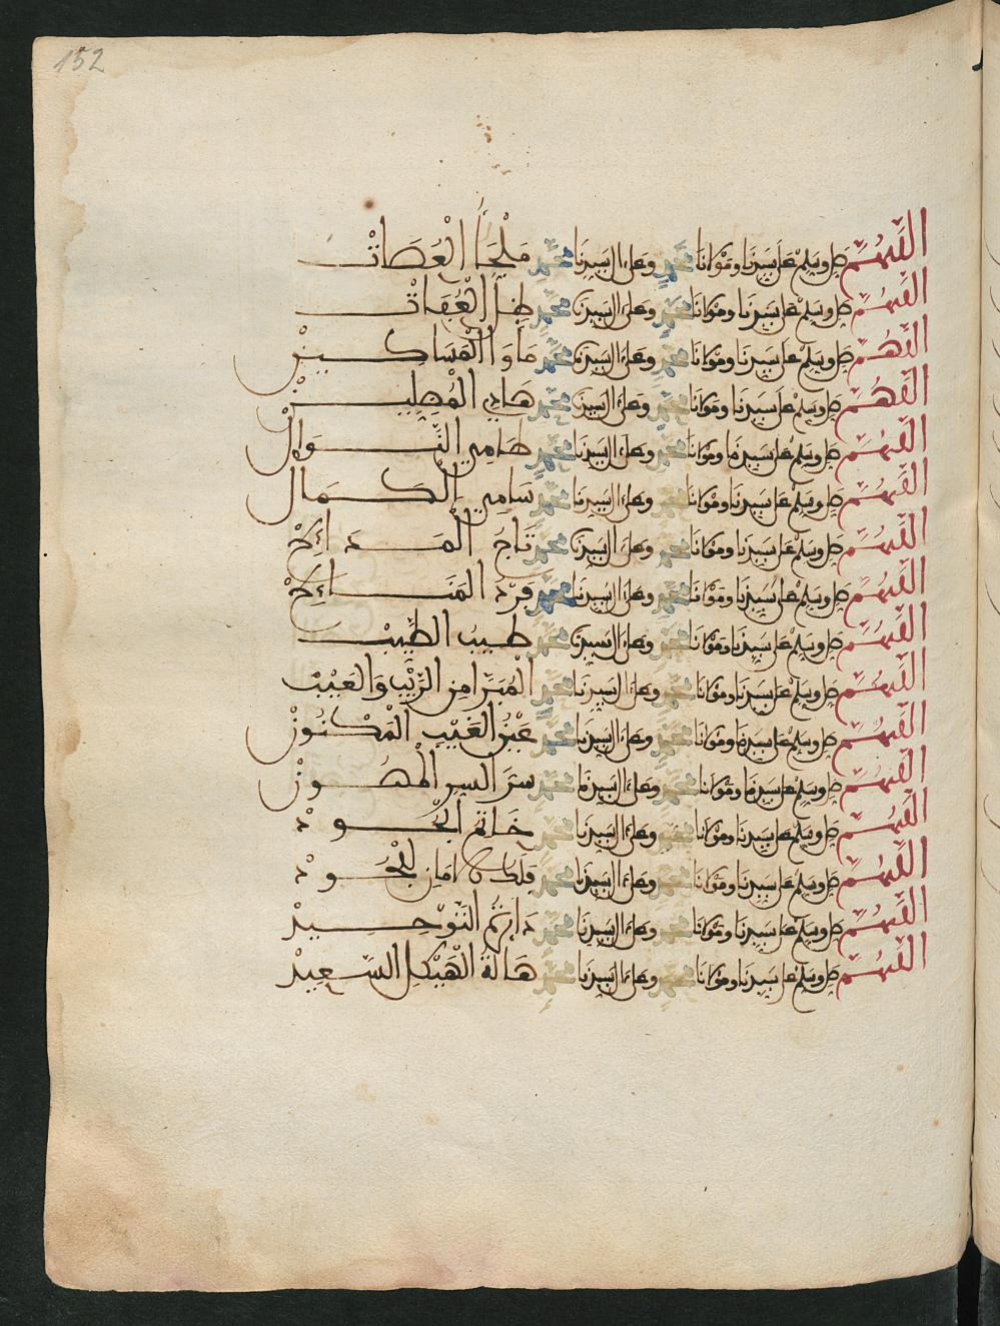 152
اللهم صل وسلم على سيدنا ومولانا محمد وعلى ال سيدنا محمد ملجإ العصات
اللهم صل وسلم على سيدنا ومولانا محمد وعلى ال سيدنا محمد
اللهم صل وسلم على سيدنا ومولانا محمد وعلى ال سيدنا محمد ماوى المساكين
اللهم صل وسلم على سيدنا ومولانا محمد وعلى ال سيدنا محمد هادي المضلين
اللهم صل وسلم على سيدنا ومولانا محمد وعلى ال سيدنا محمد هامي النوال
اللهم صل وسلم على سيدنا ومولانا محمد وعلى ال سيدنا محمد سامي الكمال
اللهم صل وسلم على سيدنا ومولانا محمد وعلى ال سيدنا محمد تاج المدائح
اللهم صل وسلم على سيدنا ومولانا محمد وعلى ال سيدنا محمد فرد المنائح
اللهم صل وسلم على سيدنا ومولانا محمد وعلى ال سيدنا محمد طبيب الطيب
اللهم صل وسلم على سيدنا ومولانا محمد وعلى ال سيدنا محمد المبرإ من الريب والعيب
اللهم صل وسلم على سيدنا ومولانا محمد وعلى ال سيدنا محمد الغيب المكنون
اللهم صل وسلم على سيدنا ومولانا محمد وعلى ال سيدنا محمد السر المصون
اللهم صل وسلم على سيدنا ومولانا محمد وعلى ال سيدنا محمد
اللهم صل وسلم على سيدنا ومولانا محمد وعلى ال سيدنا محمد
اللهم صل وسلم على سيدنا ومولانا محمد وعلى ال سيدنا محمد دائم التوحيد
اللهم صل وسلم على سيدنا ومولانا محمد وعلى ال سيدنا محمد هالة الهيكل السعيد